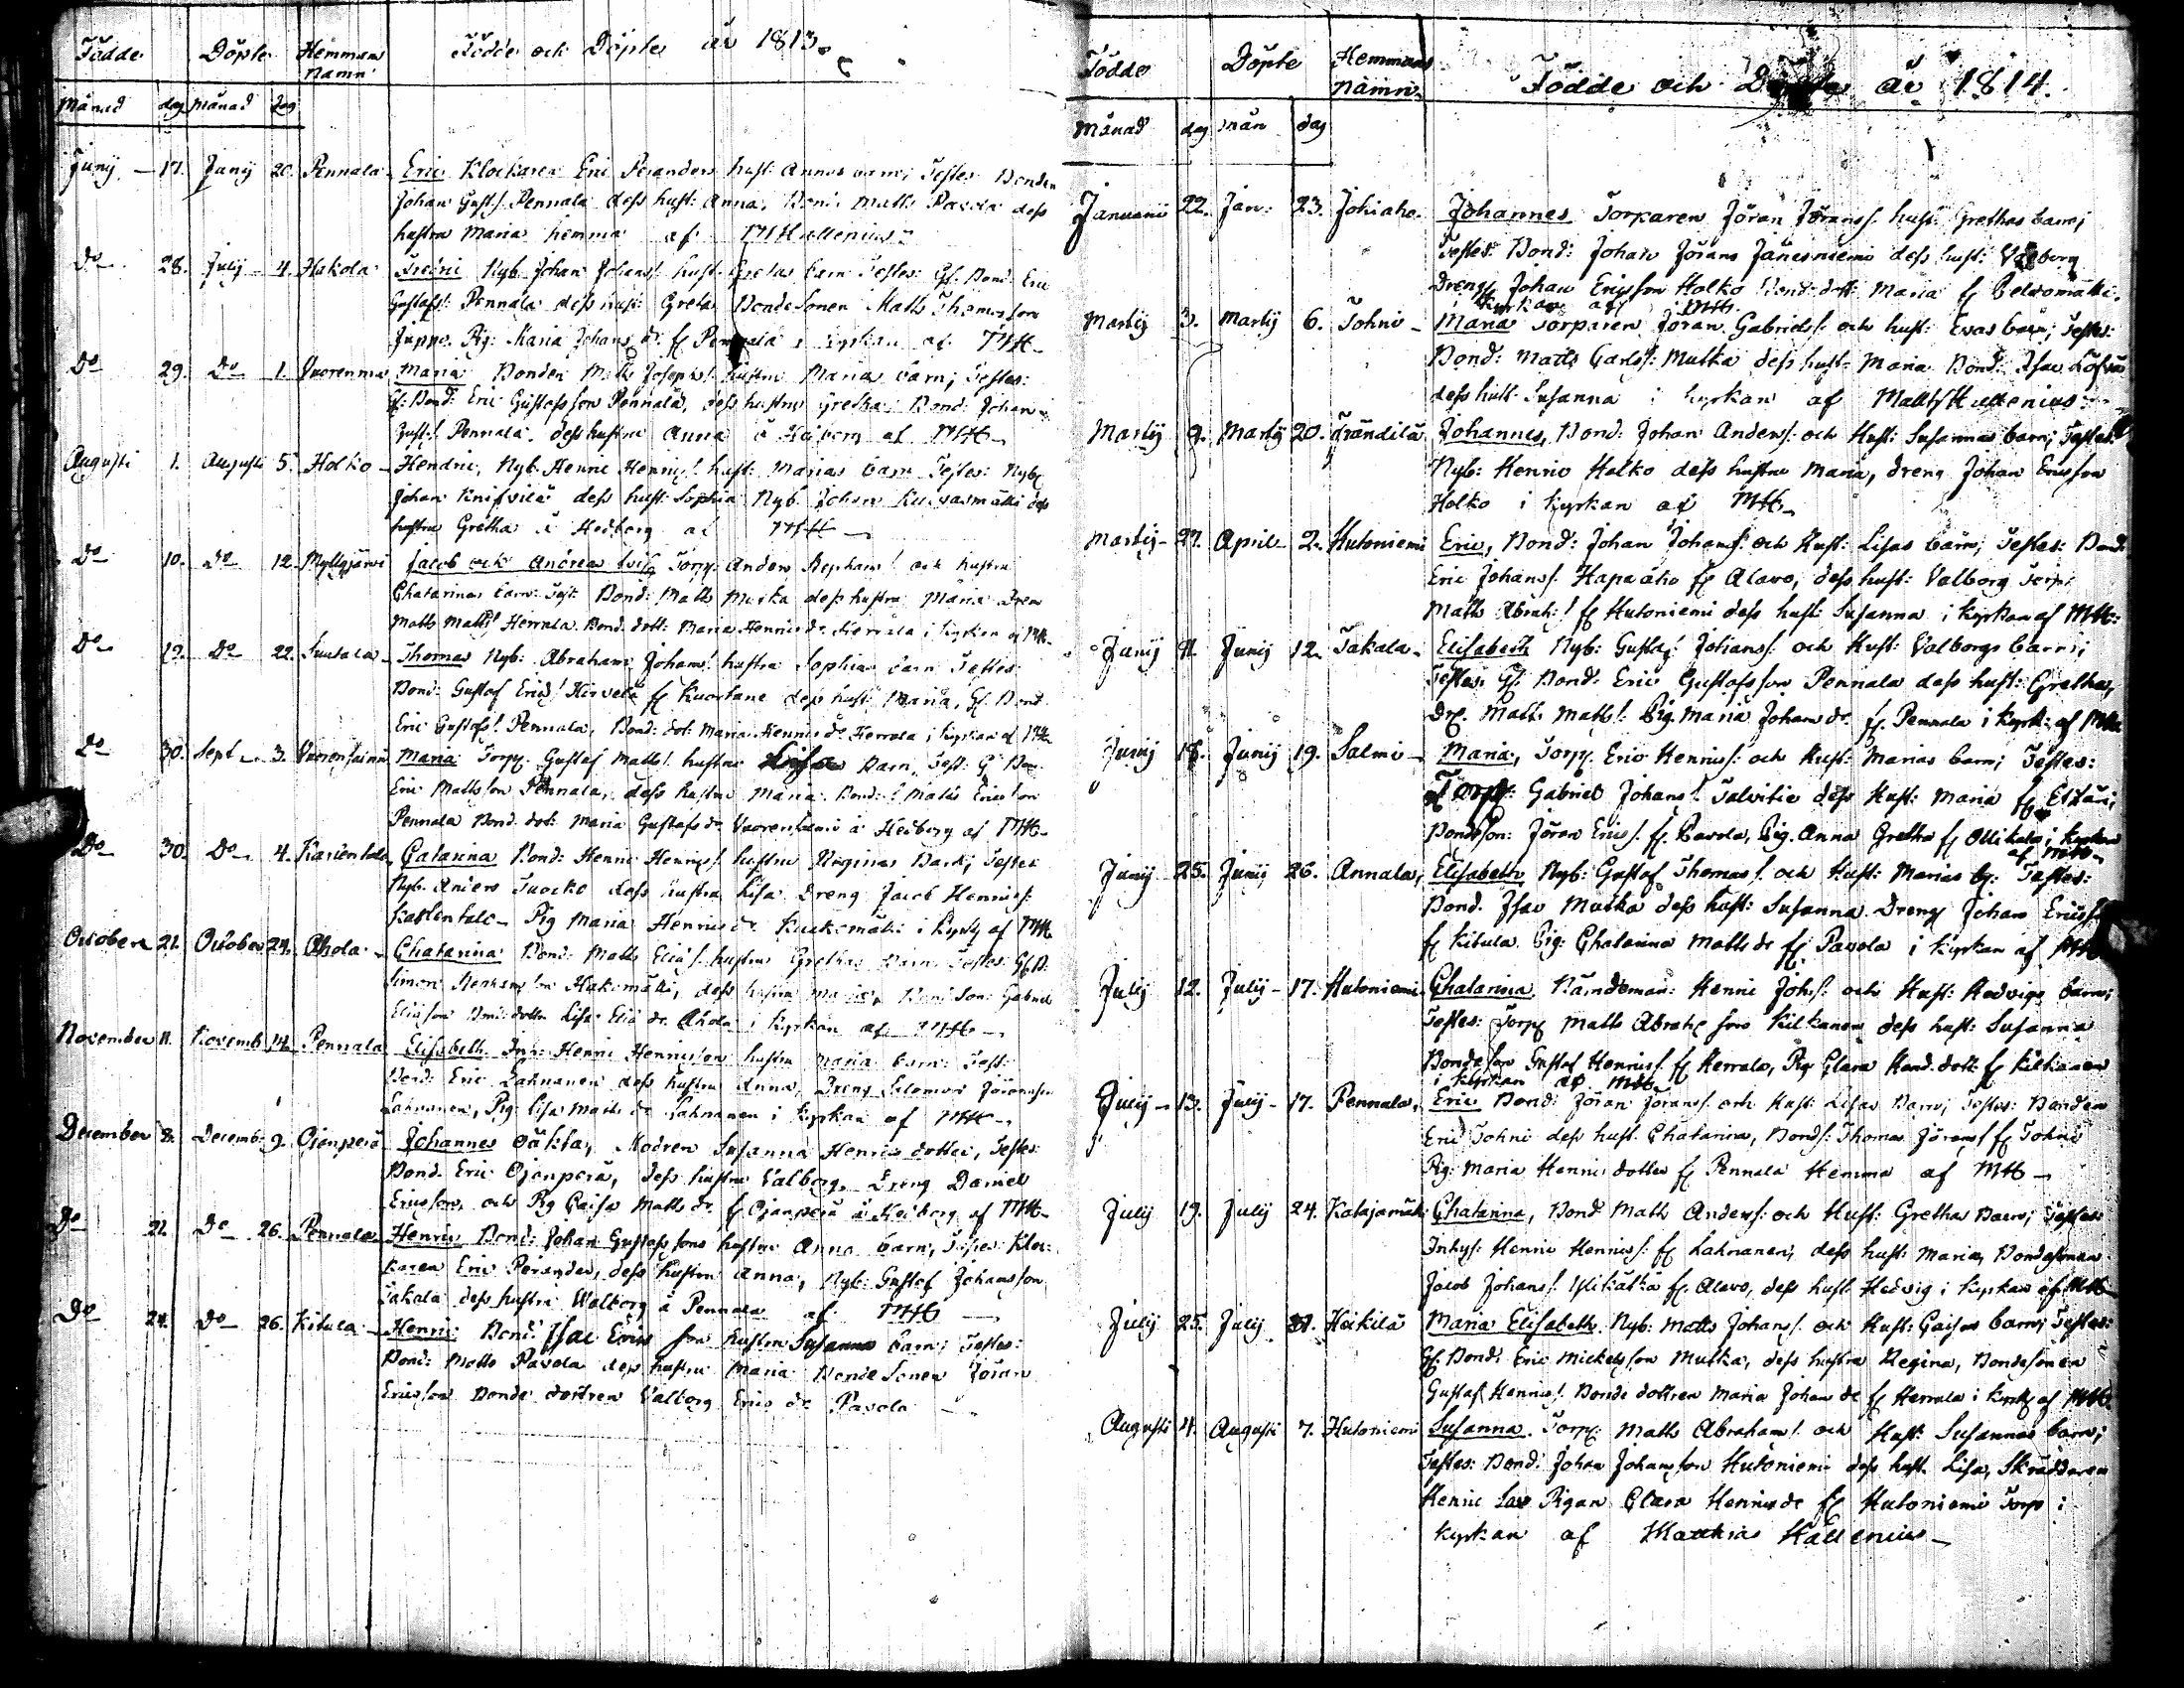 Födde Döpte Hemmans Födde och Döpte år 1813.
namn
Månad dag månad dag
Junij 17. Junij 20. Pennala Eric Klockaren Eric Peranders hust: Annas barn; Testes Bonden
Johan Gust/. Pennala dess hust: Anna, Bond: Matts Pavola dess
hustru Maria hemma af MHallenius
Do 28. Julij 4. Hakola Nyb. Johan Johans/. hust: Gretas barn Testes: Gl. Bond. Eric
Gustafs/. Pennala dess hust: Greta Bondesonen Matts Thomasson
Juppo. Pig: Maria Johans dr. fr Pennala i kyrkan af MH
Do 29. Do 1. Maria Bonden Matts Josephs/. hustru Marias barn; Testes:
Gl. Bond: Eric Gustafsson Pennala, dess hustru Gretha Bond. Johan
Gust/. Pennala. dess hustru Anna å Heiberg af MH
Augusti 1. Augusti 5. Holko Hendric, Nyb. Henric Henrics/. hust: Marias barn Testes: Nyb
Johan Knifvilä dess hust: Sophia Nyb. Johan dess
hustru Gretha å af MH
Do 10. Do 12 Myllyjärvi Jacob och Andreas Torp: Anders Stephans/. och hustru
Chatarinas barn: Test: Bond: Matts Mutka dess hustru Maria Dren
Matts Matts/. Herrala. Bond. dott: Maria Henrics dr. Herrala i kyrkan af MH
Do 19. Do 22. Thomas Nyb: Abraham Johans/. hustru Sophias barn Testes:
Bond: Gustaf Erics/. Hirvelä fr Kuortane dess hust: Maria, Gl. Bond
Eric Gustafs/. Pennala, Bond: dot: Maria Henrics dr Herrala i kyrkan af MH
Do 30. Sept 3. Maria Torp. Gustaf Matts/. hustru Barn, Test: Gl Bon.
Eric Mattsson Pennala, dess hustru Maria. Bond: Matts Ericsson
Pennala Bond. dot: Maria Gustafs dr. å Heiberg af MH
Do 30. Do 4. Catarina Bond: Henric Henrics/. hustru Reginas Barn; Testes
Nyb. Anders Tuocko dess hustru Lisa Dreng Jacob Henrics/.
Pig Maria Henrics dr. i kyrk af MH
October 21. October 24. Ahola Chatarina Bond: Matts Elias/. hustru Grethas Barn Testes: Gl B.
Simon Hakomäki, dess hustru Maria, Bond Son: Gabriel
Eliasson Bond: dotter Lisa Elia dr. Ahola i kyrkan af MH
November 11. Novemb 14. Pennala Elisabeth Inh: Henric Henricsson hustru Maria barn: Test:
Bond: Eric Lahnanen dess hustru Anna, Dreng Salomon Jöransson
Lahnanen, Pig: Lisa Matts dr Lahnanen i kyrkan af MH
December 8. Decemb: 9. Ojanperä Johannes oäkta, Modren Susanna Henrics dotter, Testes:
Bond. Eric Ojanperä, dess hustru Valborg. Dreng Daniel
Ericsson, och Pig Caisa Matts dr. f Ojanperä å Heiberg af MH
Do 21. Do 26. Pennala Henric Bond: Johan Gustafssons hustru Anna barn, Testes: Kloc
karen Eric Perander, dess hustru Anna, Nyb: Gustaf Johansson
Takala dess hustru Walborg å Pennala af MH
Do 24. Do 26. Kitula Henric Bond: Isac Erics son hustru Susannas barn; Testes:
Bond: Matts Pavola dess hustru Maria Bonde Sonen Jöran
Ericsson Bonde dottren Valborg Erics dr Pavola
Födde Döpte Hemmans Födde och Döpte år 1814.
namn
Månad dag mån dag
Januarii 22. Jan: 23. Johiaho Johannes Torparen Jöran Jörans/. hust: Grethas barn;
Testes: Bond: Johan Jörans Jänesniemi dess hust: Valborg
Dreng Johan Ericsson Holko Bond: dott: Maria fr Peltomäki.
i kyrkan af MH
Martij 3. Martij 6. Tohni Maria Torparen Jöran Gabriels/. och hust: Evas barn; Testes:
Bond: Matts Carls/. Mutka dess hust: Maria Bond: Isac
dess hust: Susanna i kyrkan af Matts Hallenius
Martij 9. Martij 20. Frändilä Johannes, Bond: Johan Anders/. och Hust: Susannas barn; Testes:
Nyb: Henric Holko dess hustru Maria, dreng Johan Ericsson
Holko i kyrkan af MH
Martij 27. April 2. Hutoniemi Eric, Bond: Johan Johans/. och Hust: Lisas barn; Testes: Bond:
Eric Johans/. Hapaaho fr Alavo, dess hust: Valborg Torp:
Matts Abrah:/. fr Hutoniemi dess hust: Susanna i kyrkan af MH:
Junij 11 Junij 12. Takala Elisabeth Nyb: Gustaf Johans/. och Hust: Valborgs barn;
Testes Gl. Bond. Eric Gustafsson Pennala dess hust: Gretha,
Dr. Matts Matts/. Pig. Maria Johans dr. fr. Pennala i kyrk: af MH
Junij 18. Junij 19. Salmi Maria, Torp. Eric Henrics/: och Hust: Marias barn; Testes:
Torp: Gabriel Johans/. Talvitie dess Hust: Maria fr Etzäri;
Bondeson: Jöran Erics/. fr. Pavola, Pig. Anna Gretha fr Ollikala i kyrkan
af MH
Junij 25. Junij 26. Annala, Elisabeth Nyb: Gustaf Thomas/. och Hust: Marias b: Testes:
Bond. Isac Mutka dess hust: Susanna. Dreng Johan Erics/.
fr Kitula. Pig: Chatarina Matts dr fr. Pavola i kyrkan af MH
Julij 12. Julij 17. Hutoniemi Chatarina Nämdeman: Henric Johs/. och Hust: Hedvigs barn;
Testes: Torp Matts Abrah son Kilkanen dess hust: Susanna
Bondeson Gustaf Henrics/. fr Herrala, Pig Clara Hend. dott: fr Kilkanen
i kyrkan af MH
Julij 13. Julij 17. Pennala, Eric Bond: Jöran Jörans/. och Hust: Lisas Barn; Testes: Bonden
Eric Tohni dess hust. Chatarina, Bonds/: Thomas Jörans/. fr Tohni
Pig: Maria Henrics dotter fr Pennala Hemma af MH
Julij 19. Julij 24. Katajamäki Chatarina, Bond Matts Anders/: och Hust: Grethas Barn; Testes:
Inhys: Henric Henrics/: fr Lahnanen, dess hust: Maria, Bondesonen
Jacob Johans/. fr. Alavo, dess hust: Hedvig i kyrkan af MH
Julij 25. Julij 31. Heikilä Maria Elisabeth. Nyb: Matts Johans/. och Hust: Caisas barn; Testes:
Gl. Bond: Eric Mickelsson Mutka, dess hustru Regina, Bondesonen
Gustaf Henrics/. Bonde dottren Maria Johans dr fr Herrala i kyrk af MH.
Augusti 4. Augusti 7. Hutoniemi Susanna. Torp: Matts Abrahams/. och Hust: Susannas barn;
Testes: Bond: Johan Johansson Hutoniemi dess hust. Lisa, Skräddaren
Henric Pigan Clara Henrics dr fr Hutoniemi Torp i
kyrkan af Mathias Hallenius